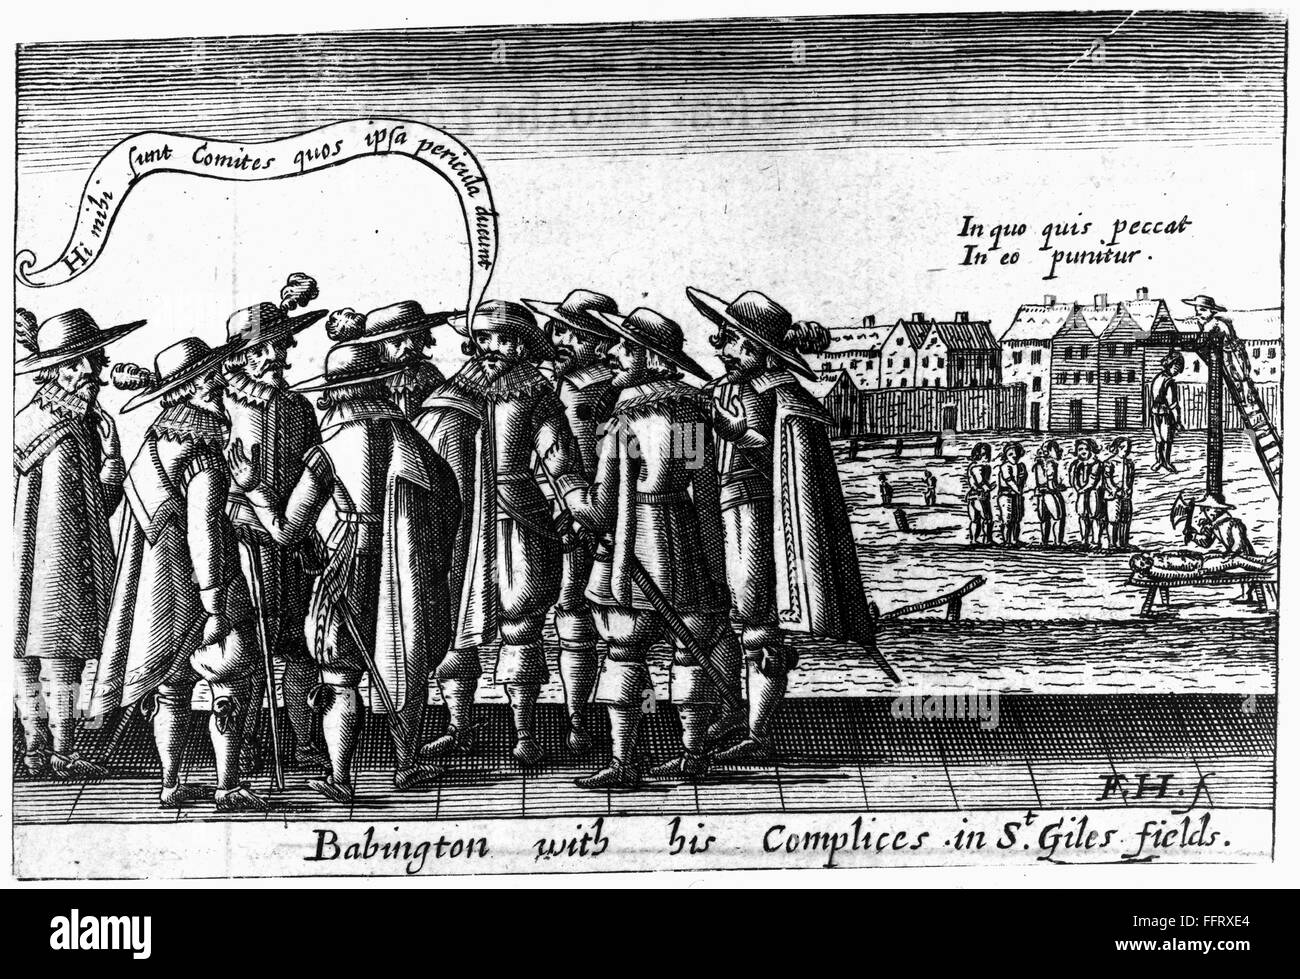 Hi mihi sunt Comites quos ipsa pericula ducunt
In quo quis peccat
In eo punitur.
F.H. f
Babington with his Complices in St. Giles fields.
alamy stock photo
FFRXE4
www.alamy.com